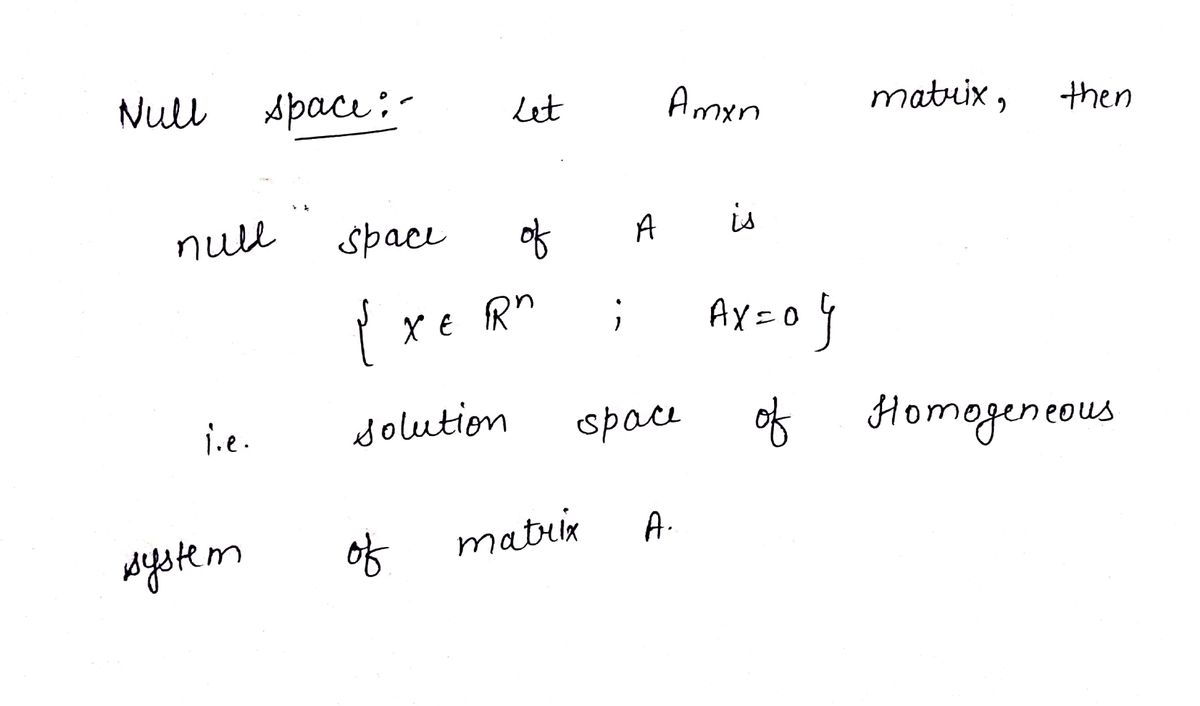 Null space:- Let Amxn matrix, then
null space of A is
{ x ∈ ℝⁿ ; AX=0 }
i.e. solution space of Homogeneous
system of matrix A.